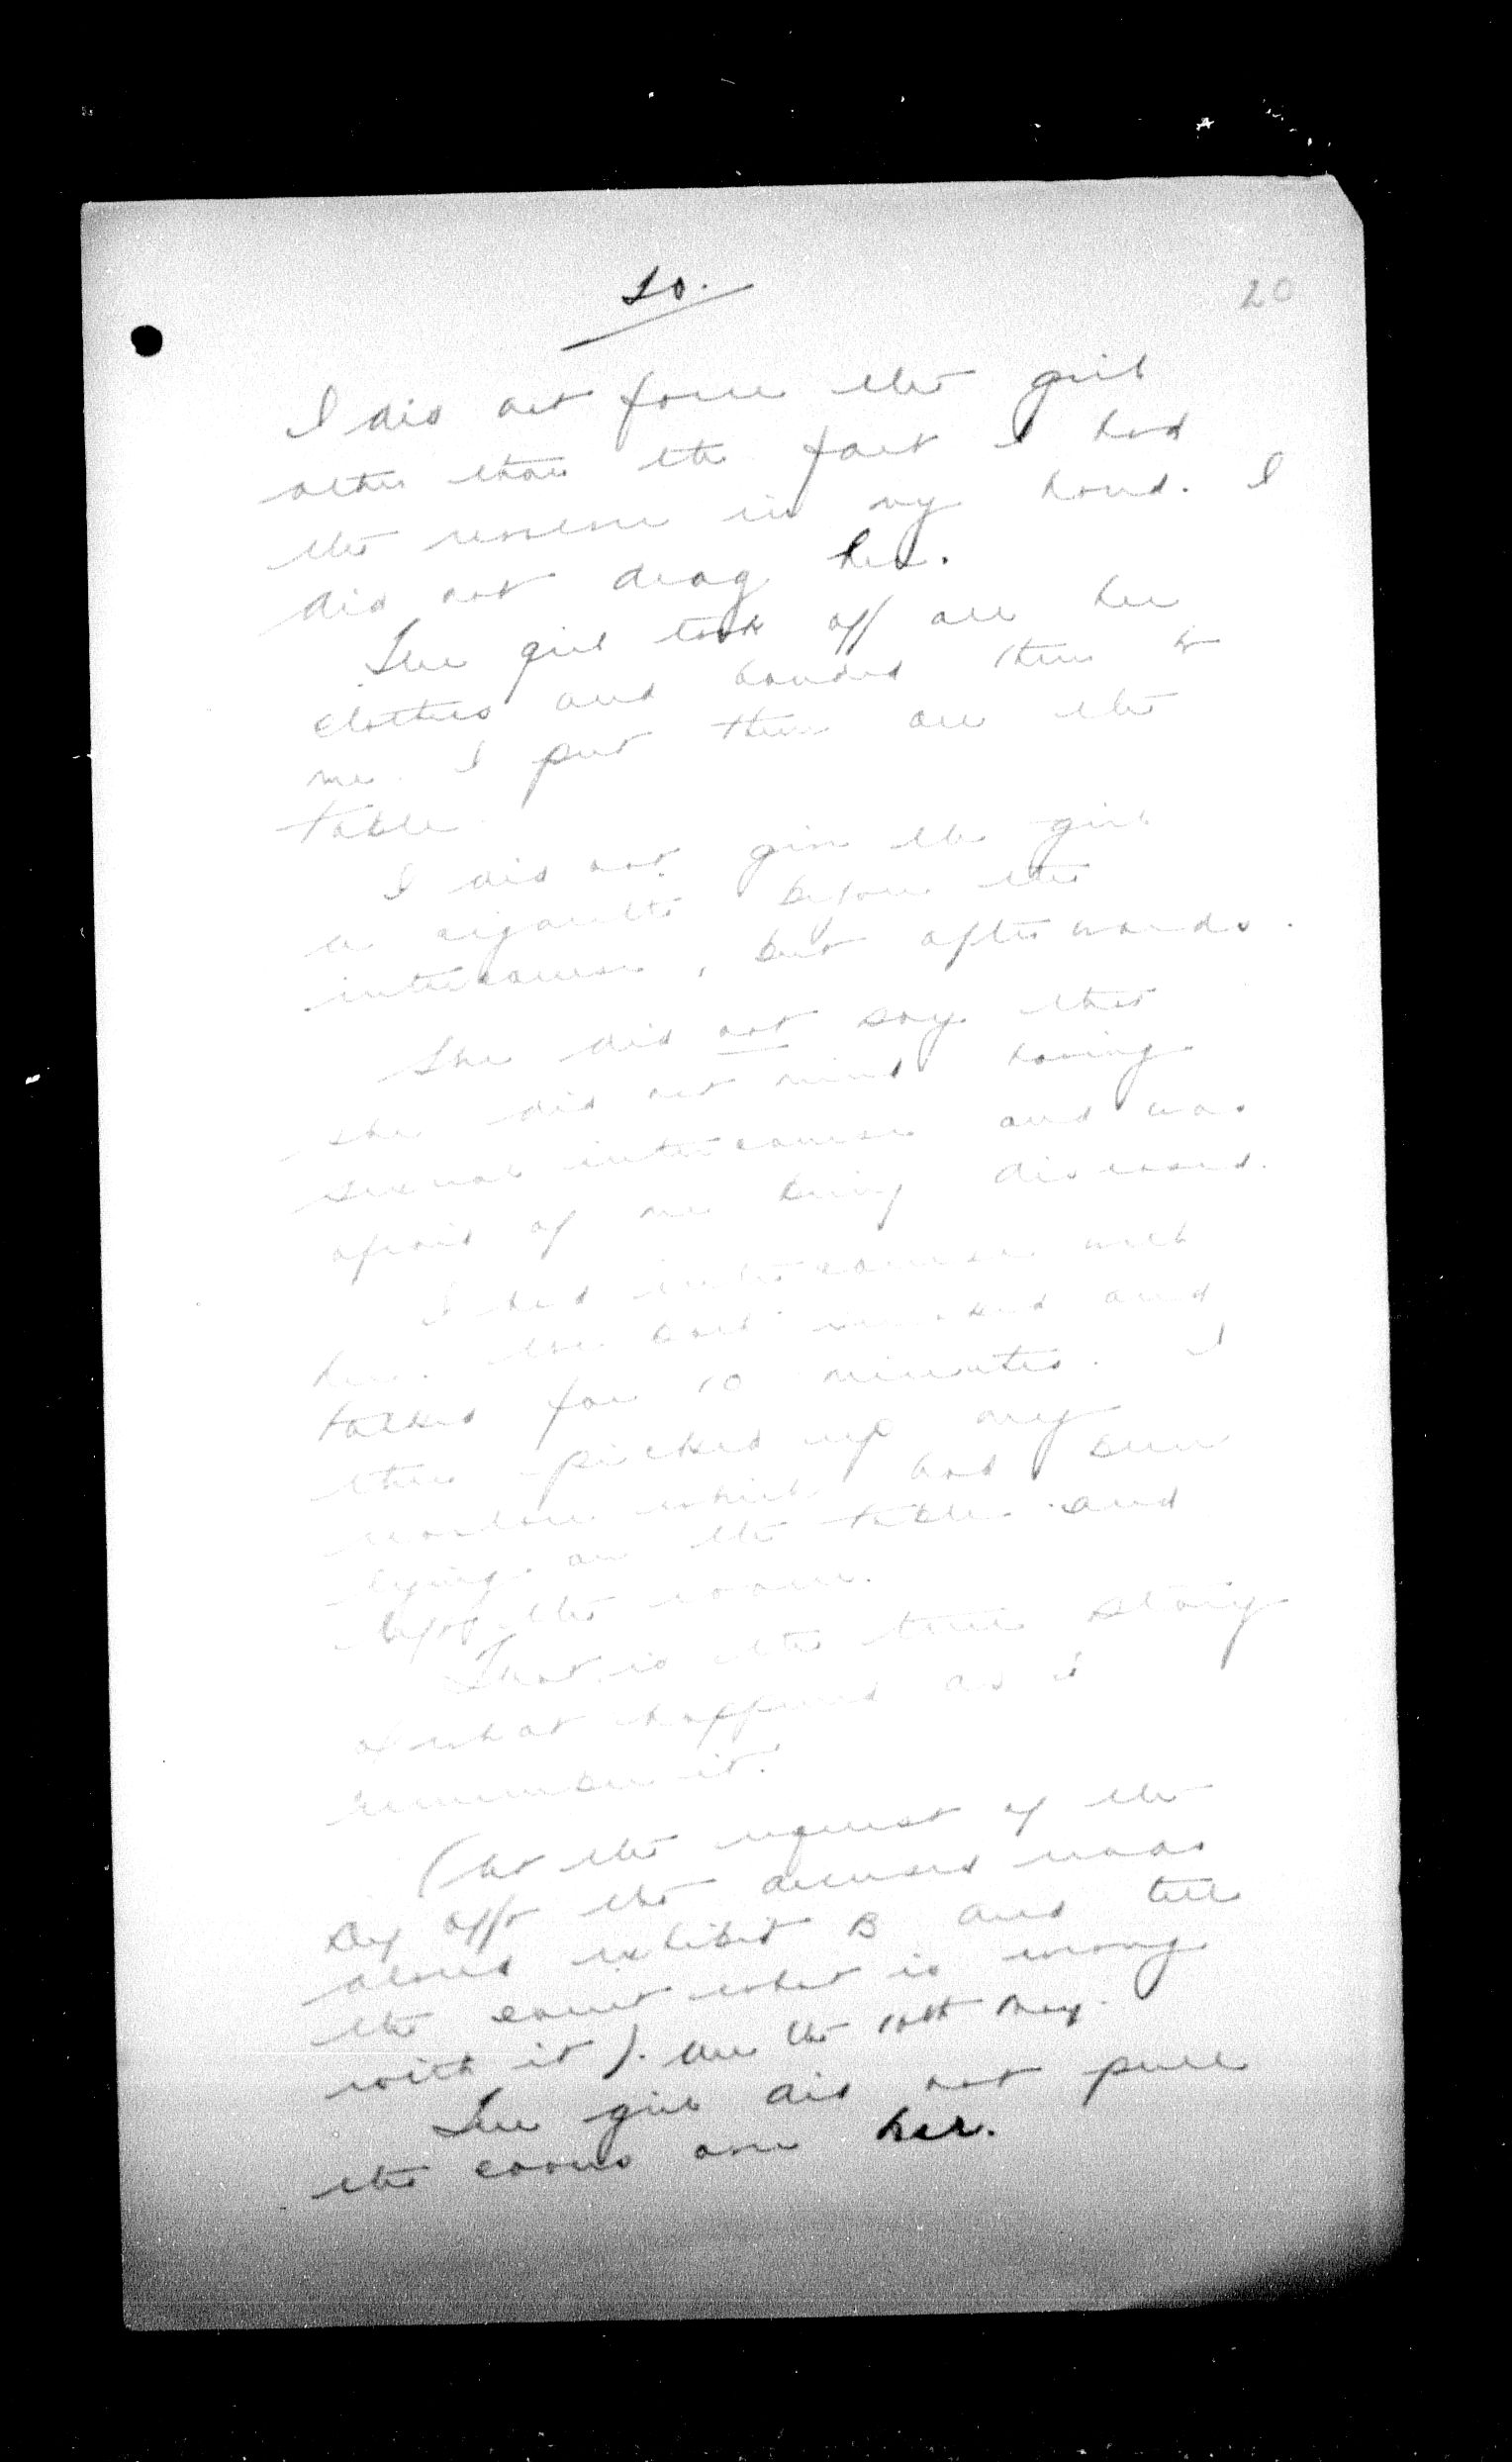 20.
20
I did not force the girl
other than the fact I had
the revolver in my hand. I
did not drag her.
The girl took off all her
clothes and handed them to
me. I put them on the
table.
I did not give the girl
a cigarette before the
intercourse, but afterwards.
She did not say that
she did not mind having
sexual intercourse and was
afraid of me being diseased.
I had intercourse with
her. We both smoked and
talked for 10 minutes. I
then picked up my
revolver which had been
lying on the table and
left the room.
That is the true story
of what happened as I
remember it.
(At the request of the
Def Offr the accused reads
aloud exhibit B and tells
the court what is wrong
with it). On the 10th May.
The girl did not pull
the covers over her.